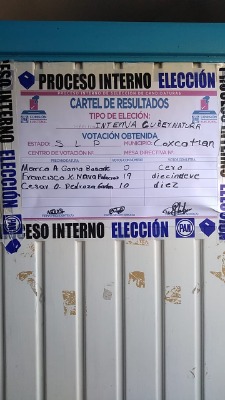 PROCESO INTERNO ELECCIÓN
PROCESO INTERNO DE SELECCIÓN DE CANDIDATURAS
CARTEL DE RESULTADOS
TIPO DE ELECIÓN:
INTERNA GUBERNATURA
VOTACIÓN OBTENIDA
ESTADO: S L P MUNICIPIO: Coxcatlan
CENTRO DE VOTACIÓN Nº MESA DIRECTIVA Nº
Marco A Gama 0 Cero
Francisco X. Nava 19 diecinueve
Cesar O. Pedroza 10 diez
PROCESO INTERNO ELECCIÓN PAN